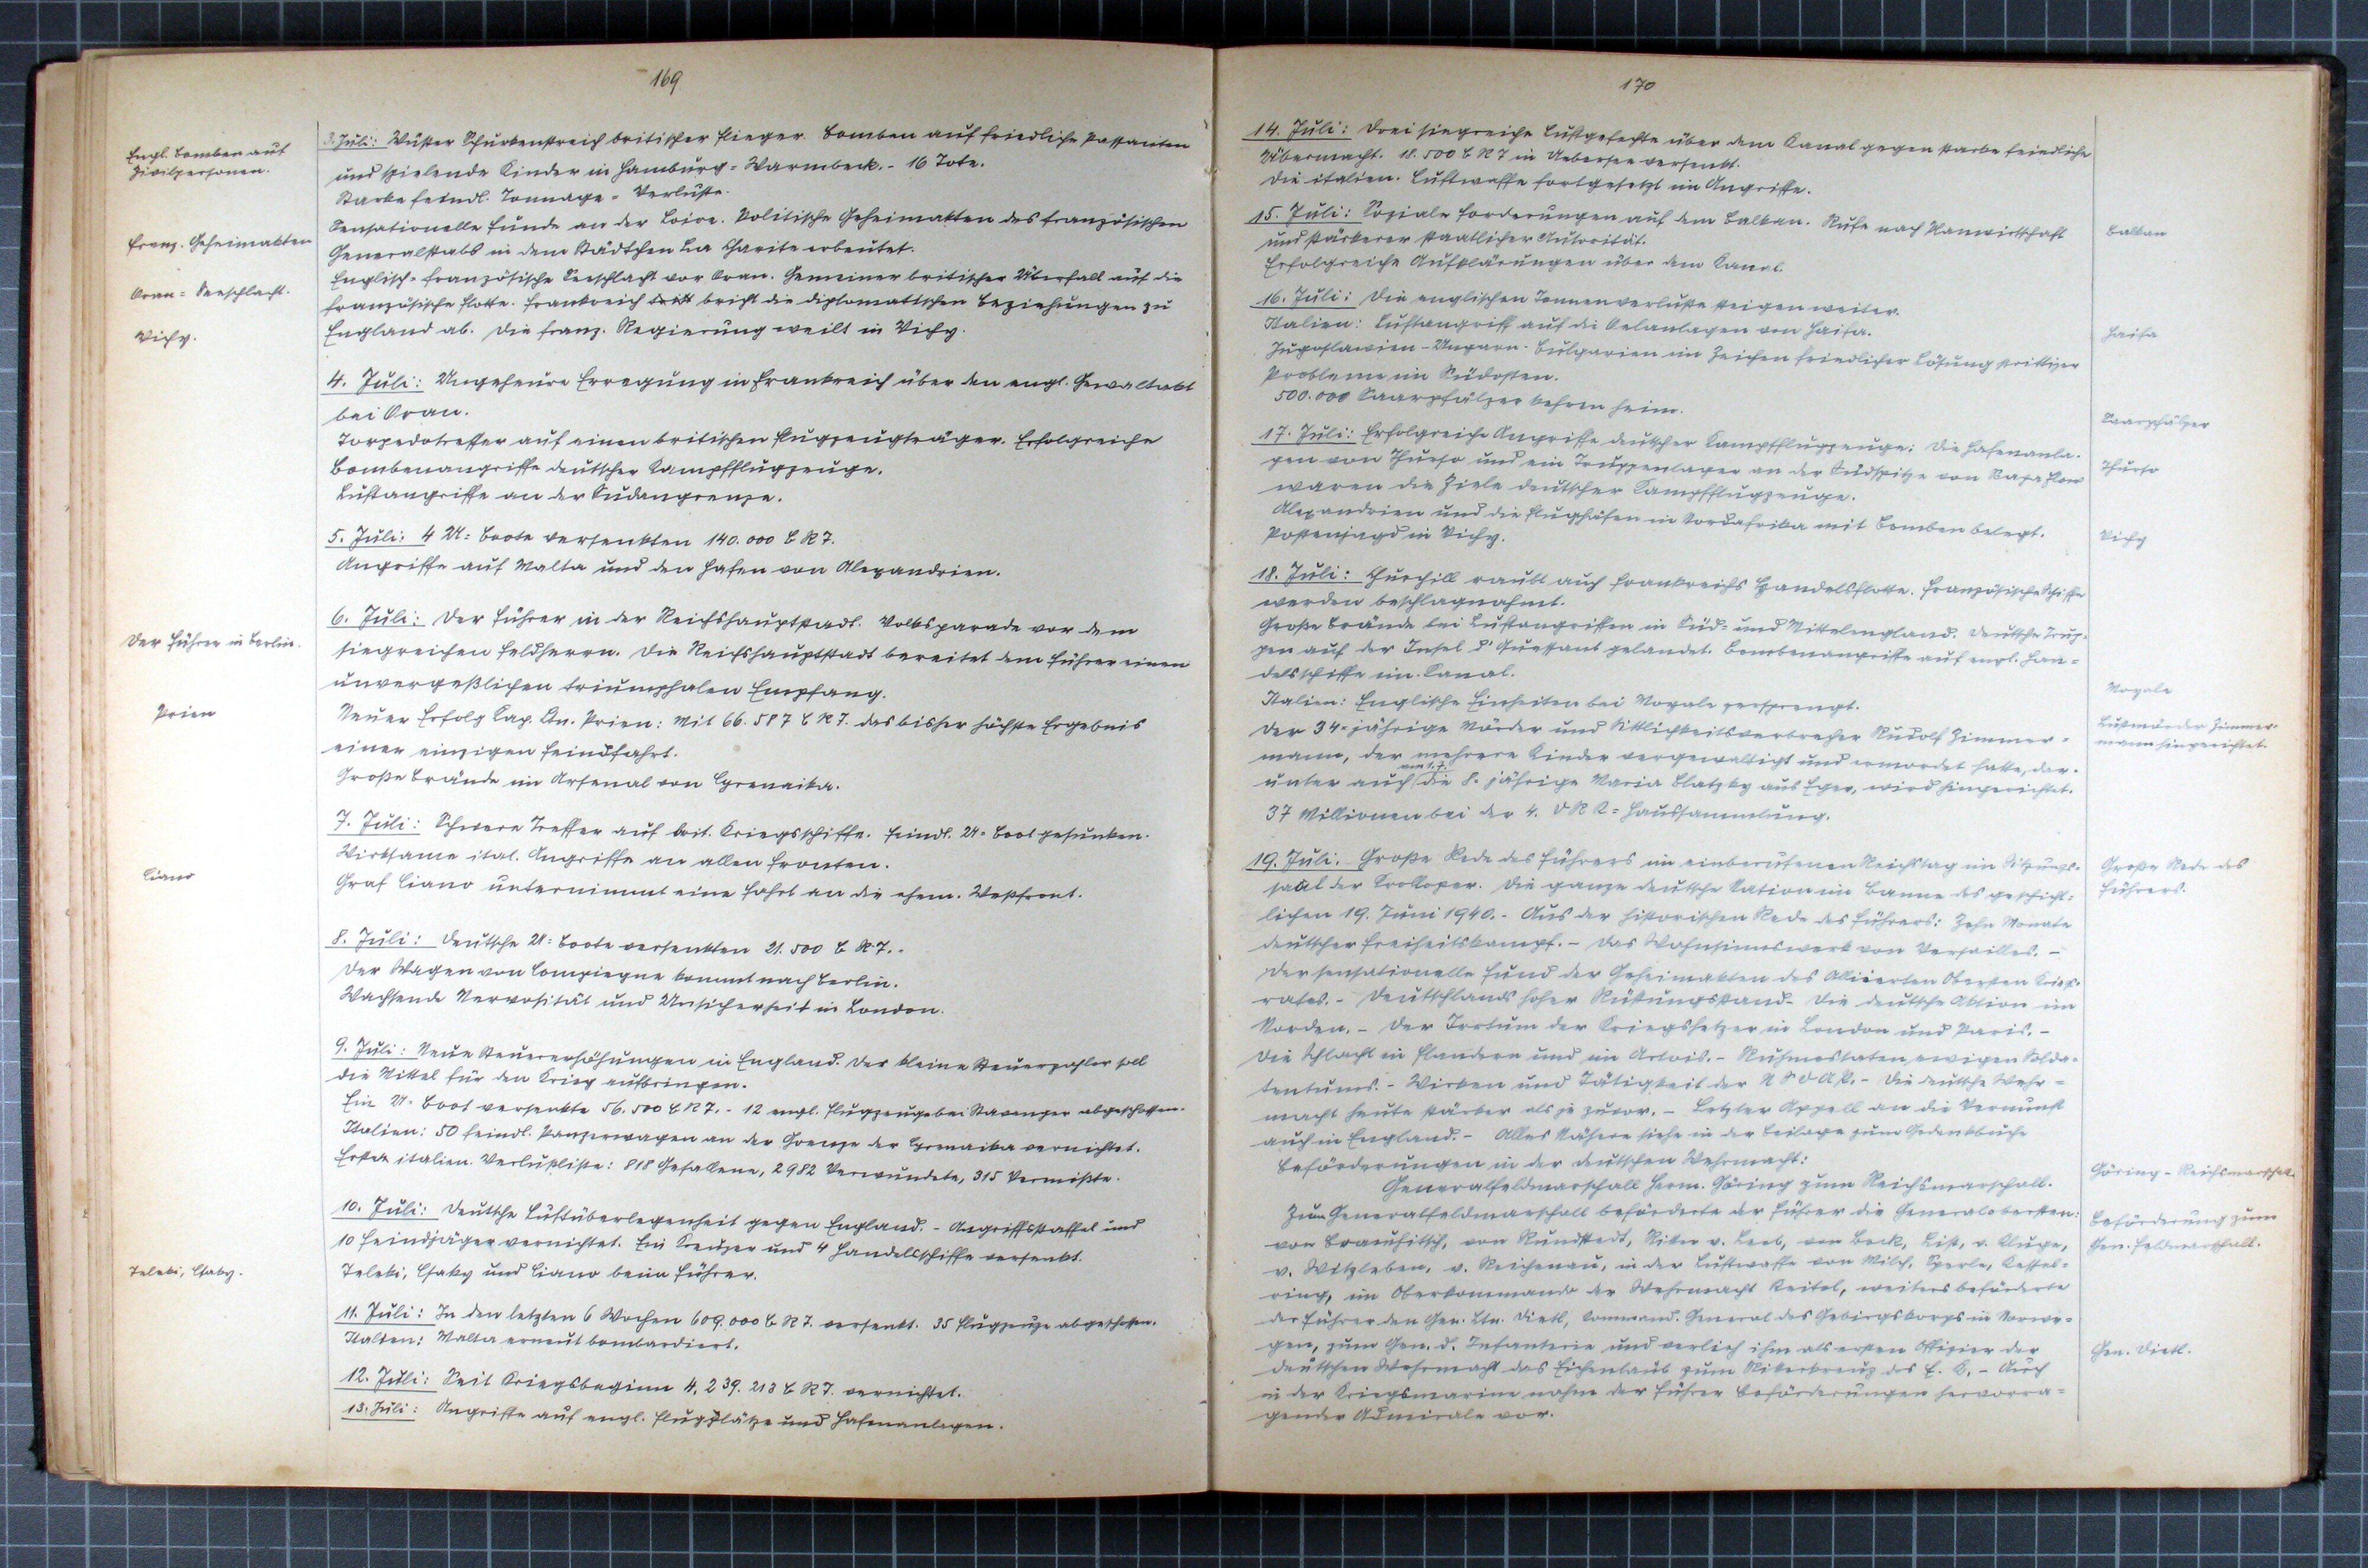 169
Engl. Bomben auf
Zivilpersonen.
Franz. Geheimakten
Oran = Seeschlacht.
Vichy.
Der Führer in Berlin.
Prien
Ciano
Teleki, Csaky.
3. Juli: Wüster Schurkenstreich britischer Flieger. Bomben auf friedliche Passanten
und spielende Kinder in Hamburg = Barmbeck. - 16 Tote.
Starke feindl. Tonnage = Verluste.
Sensationelle Funde an der Loire. Politische Geheimakten des französischen
Generalstabs in dem Städtchen La Charite erbeutet.
Englisch-französische Seeschlacht vor Oran. Gemeiner britischer Überfall auf die
französische Flotte. Frankreich bricht die diplomatischen Beziehungen zu
England ab. Die franz. Regierung weilt in Vichy.
4. Juli: Ungeheure Erregung in Frankreich über den engl. Gewaltakt
bei Oran.
Torpedotreffer auf einen britischen Flugzeugträger. Erfolgreiche
Bombenangriffe deutscher Kampfflugzeuge.
Luftangriffe an der Sudangrenze.
5. Juli: 4 U=Boote versenkten 140.000 B R T.
Angriffe auf Malta und den Hafen von Alexandrien.
6. Juli: Der Führer in der Reichshauptstadt. Volksparade vor dem
siegreichen Feldherrn. Die Reichshauptstadt bereitet dem Führer einen
unvergeßlichen triumphalen Empfang.
Neuer Erfolg Kap. Ltn. Prien: Mit 66.587 B R T. das bisher höchste Ergebnis
einer einzigen Feindfahrt.
Große Brände im Arsenal von Cyrenaika.
7. Juli: Schwere Treffer auf brit. Kriegsschiffe. Feindl. U=Boot gesunken.
Wirksame ital. Angriffe an allen Fronten.
Graf Ciano unternimmt eine Fahrt an die ehem. Westfront.
8. Juli: Deutsche U=Boote versenkten 21.500 B R T. -
Der Wagen von Compiegne kommt nach Berlin.
Wachsende Nervosität und Unsicherheit in London.
9. Juli: Neue Steuererhöhungen in England. Der kleine Steuerzahler soll
die Mittel für den Krieg aufbringen.
Ein U=Boot versenkte 56.500 B R T. - 12 engl. Flugzeuge bei Stavanger abgeschossen.
Italien: 50 feindl. Panzerwagen an der Grenze der Cyrenaika vernichtet.
Erste italien. Verlustliste: 818 Gefallene, 2982 Verwundete, 315 Vermißte.
10. Juli: Deutsche Luftüberlegenheit gegen England. - Angriffsstaffel und
10 Feindjäger vernichtet. Ein Kreuzer und 4 Handelsschiffe versenkt.
Teleki, Csaky und Ciano beim Führer.
11. Juli: In den letzten 6 Wochen 609.000 B R T. versenkt. 35 Flugzeuge abgeschossen.
Italien: Malta erneut bombardiert.
12. Juli: Seit Kriegsbeginn 4,239.213 B R T. vernichtet.
13. Juli: Angriffe auf engl. Flugplätze und Hafenanlagen.
170
14. Juli: Drei siegreiche Luftgefechte über dem Kanal gegen starke feindliche
Übermacht. 18.500 B R T in Uebersee versenkt.
Die italien. Luftwaffe fortgesetzt im Angriffe.
15. Juli: Soziale Forderungen auf dem Balkan. Rufe nach Planwirtschaft
und stärkerer staatlicher Autorität.
Erfolgreiche Aufklärungen über dem Kanal.
16. Juli: Die englischen Tonnenverluste steigen weiter.
Italien: Luftangriff auf die Oelanlagen von Haifa.
Jugoslawien-Ungarn-Bulgarien im Zeichen friedlicher Lösung strittiger
Probleme im Südosten.
500.000 Saarpfälzer kehren heim.
17. Juli: Erfolgreiche Angriffe deutscher Kampfflugzeuge: Die Hafenanla-
gen von Thurso und ein Truppenlager an der Südspitze von Scapa Flow
waren die Ziele deutscher Kampfflugzeuge.
Alexandrien und die Flughäfen in Nordafrika mit Bomben belegt.
Postenjagd in Vichy.
18. Juli: Churchill raubt auch Frankreichs Handelsflotte. Französische Schiffe
werden beschlagnahmt.
Große Brände bei Luftangriffen in Süd- und Mittelengland. Deutsche Trup-
pen auf der Insel d'Quessant gelandet. Bombenangriffe auf engl. Han=
delsschiffe im Kanal.
Italien: Englische Einheiten bei Moyale zersprengt.
Der 34-jährige Mörder und Sittlichkeitsverbrecher Rudolf Zimmer-
mann, der mehrere Kinder vergewaltigt und ermordet hatte, dar-
unter auch die 8-jährige Maria Blatzky aus Eger, wird hingerichtet.
37 Millionen bei der 4. D R K = Haussammlung.
19. Juli. Große Rede des Führers im einberufenen Reichstag im Sitzungs-
saal der Krolloper. Die ganze deutsche Nation im Banne des geschicht=
lichen 19. Juni 1940. - Aus der historischen Rede des Führers: Zehn Monate
deutscher Freiheitskampf. - Das Wahnsinnswerk von Versailles. -
Der sensationelle Fund der Geheimakten des Alliierten Obersten Kriegs-
rates. - Deutschlands hoher Rüstungsstand. Die deutsche Aktion im
Norden. - Der Irrtum der Kriegshetzer in London und Paris. -
Die Schlacht in Flandern und im Artois. - Ruhmestaten ewigen Solda-
tentums. - Wirken und Tätigkeit der N S D A P. - Die deutsche Wehr=
macht heute stärker als je zuvor. - Letzter Appell an die Vernunft
auch in England. - Alles Nähere siehe in der Beilage zum Gedenkbuche
Beförderungen in der deutschen Wehrmacht:
Generalfeldmarschall Herm. Göring zum Reichsmarschall.
Zum Generalfeldmarschall beförderte der Führer die Generalobersten:
von Brauchitsch, von Rundstedt, Ritter v. Leeb, von Bock, List, v. Kluge,
v. Witzleben, v. Reichenau, in der Luftwaffe von Milch, Sperle, Kessel=
ring, im Oberkommando der Wehrmacht Keitel, weiters beförderte
der Führer den Gen. Ltn. Dietl, Command. General des Gebirgskorps in Norwe=
gen, zum Gen. d. Infanterie und verlieh ihm als ersten Offizier der
deutschen Wehrmacht das Eichenlaub zum Ritterkreuz des E. K. - Auch
in der Kriegsmarine nahm der Führer Beförderungen hervorra=
gender Admirale vor.
Balkan
Haifa
Saarpfälzer
Thurso
Vichy
Moyale
Lustmörder Zimmer-
mann hingerichtet.
Große Rede des
Führers.
Göring - Reichsmarschall
Beförderung zum
Gen. Feldmarschall.
Gen. Dietl.